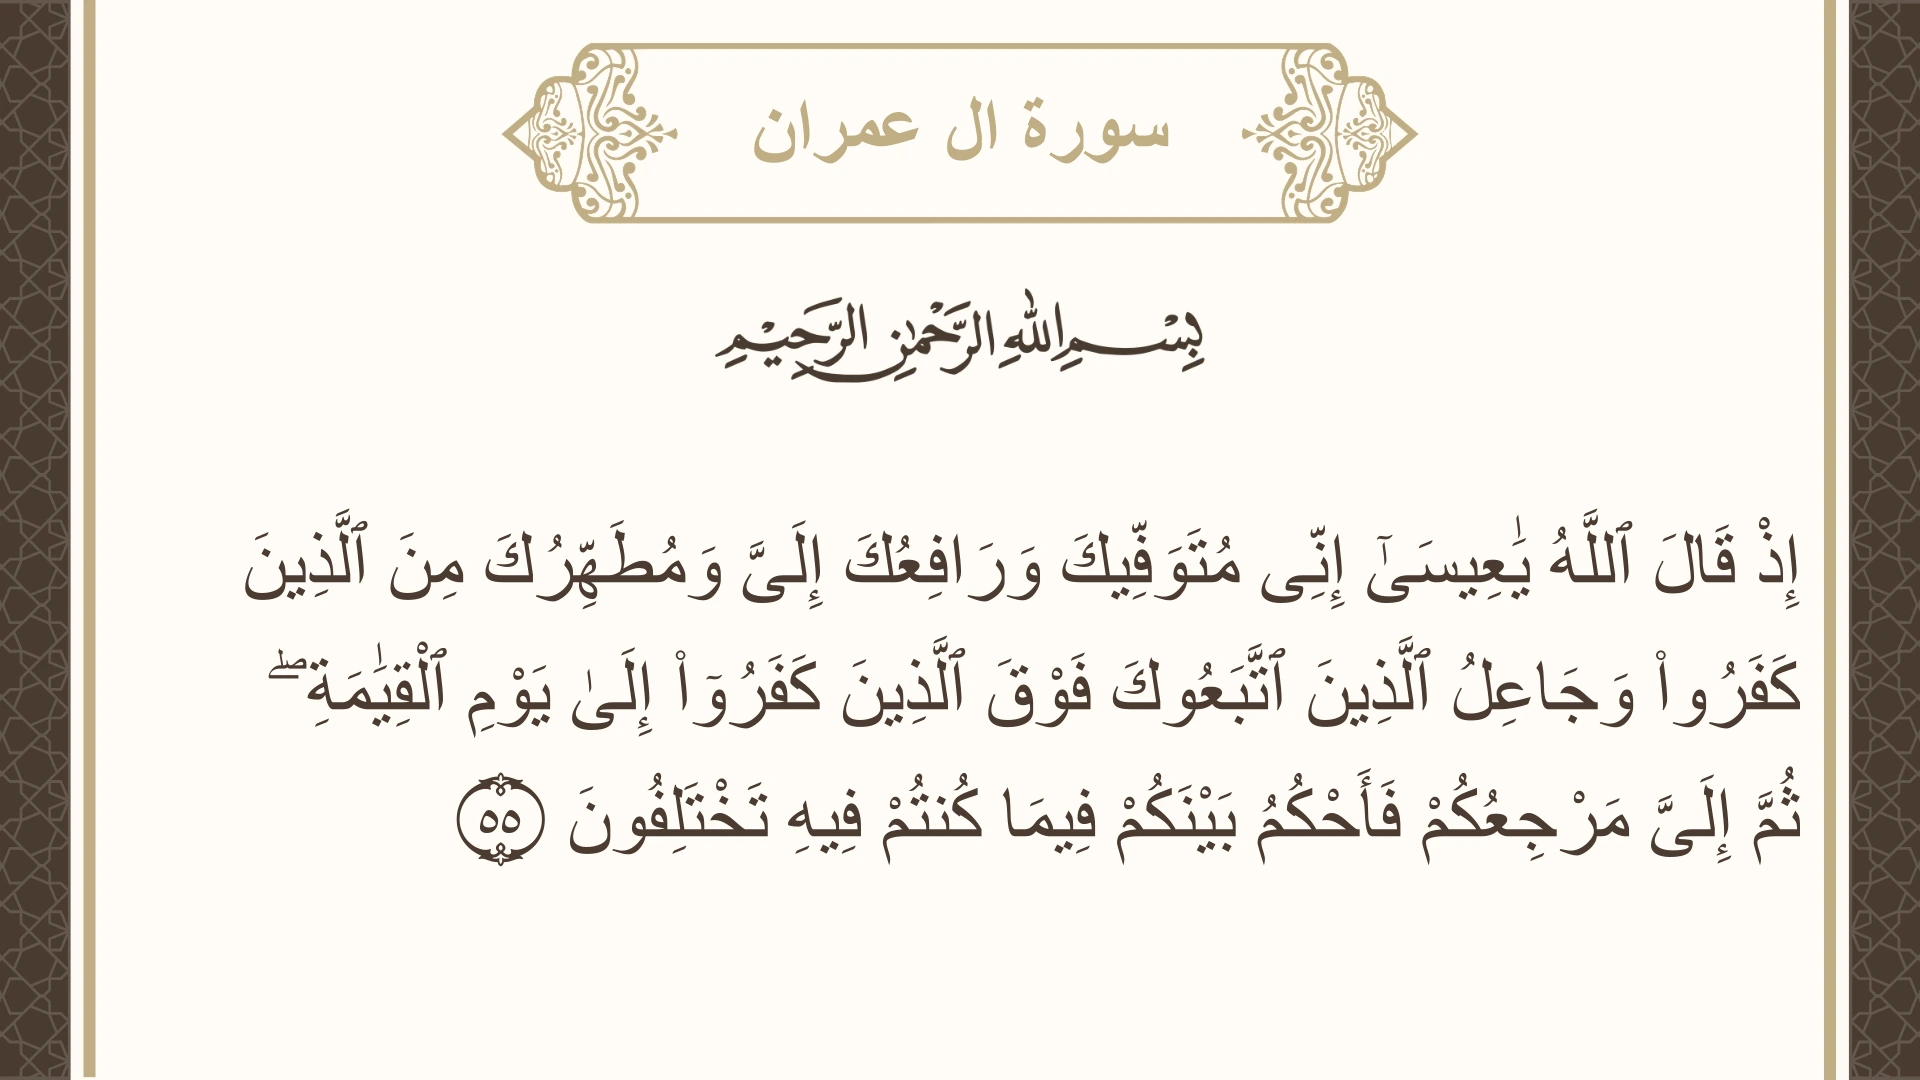 سورة ال عمران
بِسْمِ اللهِ الرَّحْمٰنِ الرَّحِيْمِ
إِذْ قَالَ ٱللَّهُ يَٰعِيسَىٰٓ إِنِّى مُتَوَفِّيكَ وَرَافِعُكَ إِلَىَّ وَمُطَهِّرُكَ مِنَ ٱلَّذِينَ
كَفَرُوا۟ وَجَاعِلُ ٱلَّذِينَ ٱتَّبَعُوكَ فَوْقَ ٱلَّذِينَ كَفَرُوٓا۟ إِلَىٰ يَوْمِ ٱلْقِيَٰمَةِ ۖ
ثُمَّ إِلَىَّ مَرْجِعُكُمْ فَأَحْكُمُ بَيْنَكُمْ فِيمَا كُنتُمْ فِيهِ تَخْتَلِفُونَ ٥٥